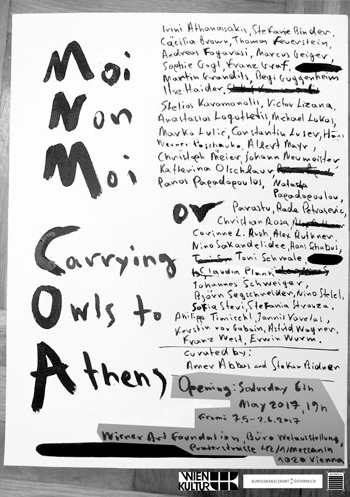 Moi
Non
Moi
Carrying
Owls to
Athens
Irini Athanasakis, Stefanie Binder,
Cäcilia Brown, Thomas Feuerstein,
Andreas Fogarasi, Marcus Geiger,
Sophie Gogl, Franz Graf,
Martin Grandits, Begi Guggenheim
Ilse Haider,
Stelios Karamanolis, Victor Lizana,
Anastasios Logothetis, Michael Lukas,
Marko Lulic, Constantin Luser, Hans
Werner Poschauko, Albert Mayr,
Christoph Meier, Johann Neumeister
Katherina Olschbaur,
Panos Papadopoulos, Natasha
Papadopoulou,
or
Parastu, Rade Petrasevic,
Christian Rosa,
Corinne L. Rush, Alex Ruthner,
Nino Sakandelidze, Hans Schabus,
Toni Schmale,
Claudia Plank
Johannes Schweiger,
Björn Segschneider, Nino Stelzl,
Sofia Stevi, Stefania Strouza,
Philipp Timischl, Jannis Varelas,
Kerstin von Gabain, Astrid Wagner,
Franz West, Erwin Wurm.
curated by:
Amer Abbas and Stefan Bidner
Opening: Saturday 6th
May 2017, 19h
From: 7.5-2.6.2017
Wiener Art Foundation, Büro Weltausstellung,
Praterstraße 42/1/Mezzanin
1020 Vienna
WIEN
KULTUR
BUNDESKANZLERAMT ÖSTERREICH